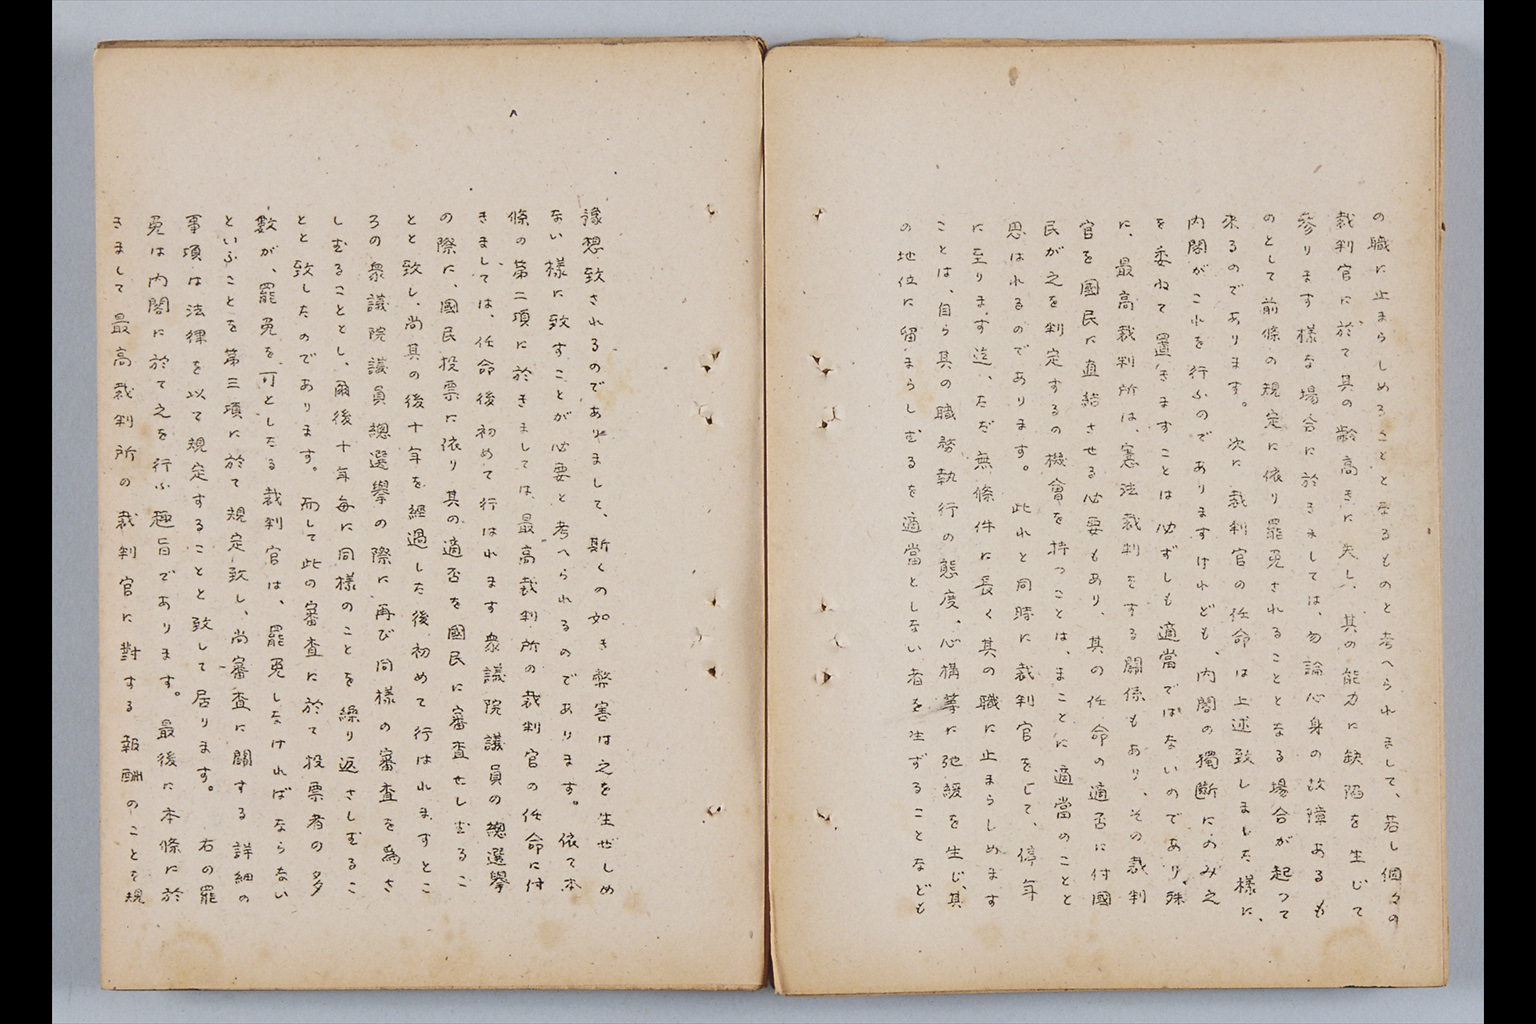 の職に止まらしめることと至るものと考へられまして、若し個々の
裁判官に於て其の齢高きに失し、其の能力に缺陥を生じて
参ります様な場合に於きましては、勿論心身の故障あるも
のとして前條の規定に依り罷免されることとなる場合が起つて
來るのであります。次に裁判官の任命は上述致しました様に、
内閣がこれを行ふのでありますけれども、内閣の獨斷にのみ之
を委ねて置きますことは必ずしも適當ではないのであり、殊
に、最高裁判所は、憲法裁判をする關係もあり、その裁判
官を國民に直結させる必要もあり、其の任命の適否に付國
民が之を判定するの機會を持つことは、まことに適當のことと
思はれるのであります。此れと同時に裁判官をして、停年
に至ります迄、ただ無條件に長く其の職に止まらしめます
ことは、自ら其の職務執行の態度、心構等に弛緩を生じ、其
の地位に留まらしむるを適當としない者を生ずることなども
豫想致されるのでありまして、斯くの如き弊害は之を生ぜしめ
ない様に致すことが必要と考へられるのであります。依て本
條の第二項に於きましては、最高裁判所の裁判官の任命に付
きましては、任命後初めて行はれます衆議院議員の總選擧
の際に、國民投票に依り其の適否を國民に審査せしむるこ
とと致し、尚其の後十年を經過した後初めて行はれますとこ
ろの衆議院議員總選擧の際に再び同様の審査を為さ
しむることとし、爾後十年毎に同様のことを繰り返さしむるこ
とと致したのであります。而して此の審査に於て投票者の多
數が、罷免を可としたる裁判官は、罷免しなければならない
といふことを第三項に於て規定致し、尚審査に關する詳細の
事項は法律を以て規定することと致して居ります。右の罷
免は内閣に於て之を行ふ趣旨であります。最後に本條に於
きまして最高裁判所の裁判官に對する報酬のことを規